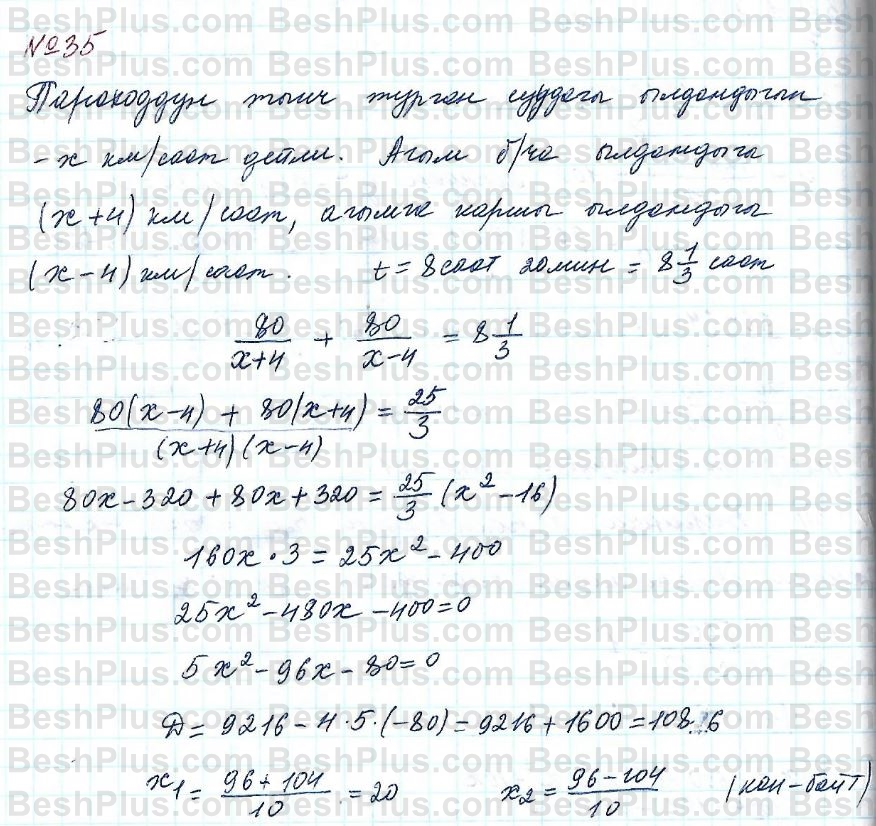 №35
Пароходдун тынч турган суудагы ылдамдыгын
- x км/саат дейли. Агым б/ча ылдамдыгы
(x+4) км/саат, агымга каршы ылдамдыгы
(x-4) км/саат. t = 8 саат 20 мин = 8 1/3 саат
80/(x+4) + 80/(x-4) = 8 1/3
(80(x-4) + 80(x+4))/((x+4)(x-4)) = 25/3
80x-320+80x+320 = 25/3 (x²-16)
160x·3 = 25x²-400
25x²-480x-400=0
5x²-96x-80=0
Д = 9216-4·5·(-80) = 9216+1600=10816
x₁ = (96+104)/10 = 20 x₂ = (96-104)/10 (кан-байт)
BeshPlus.com